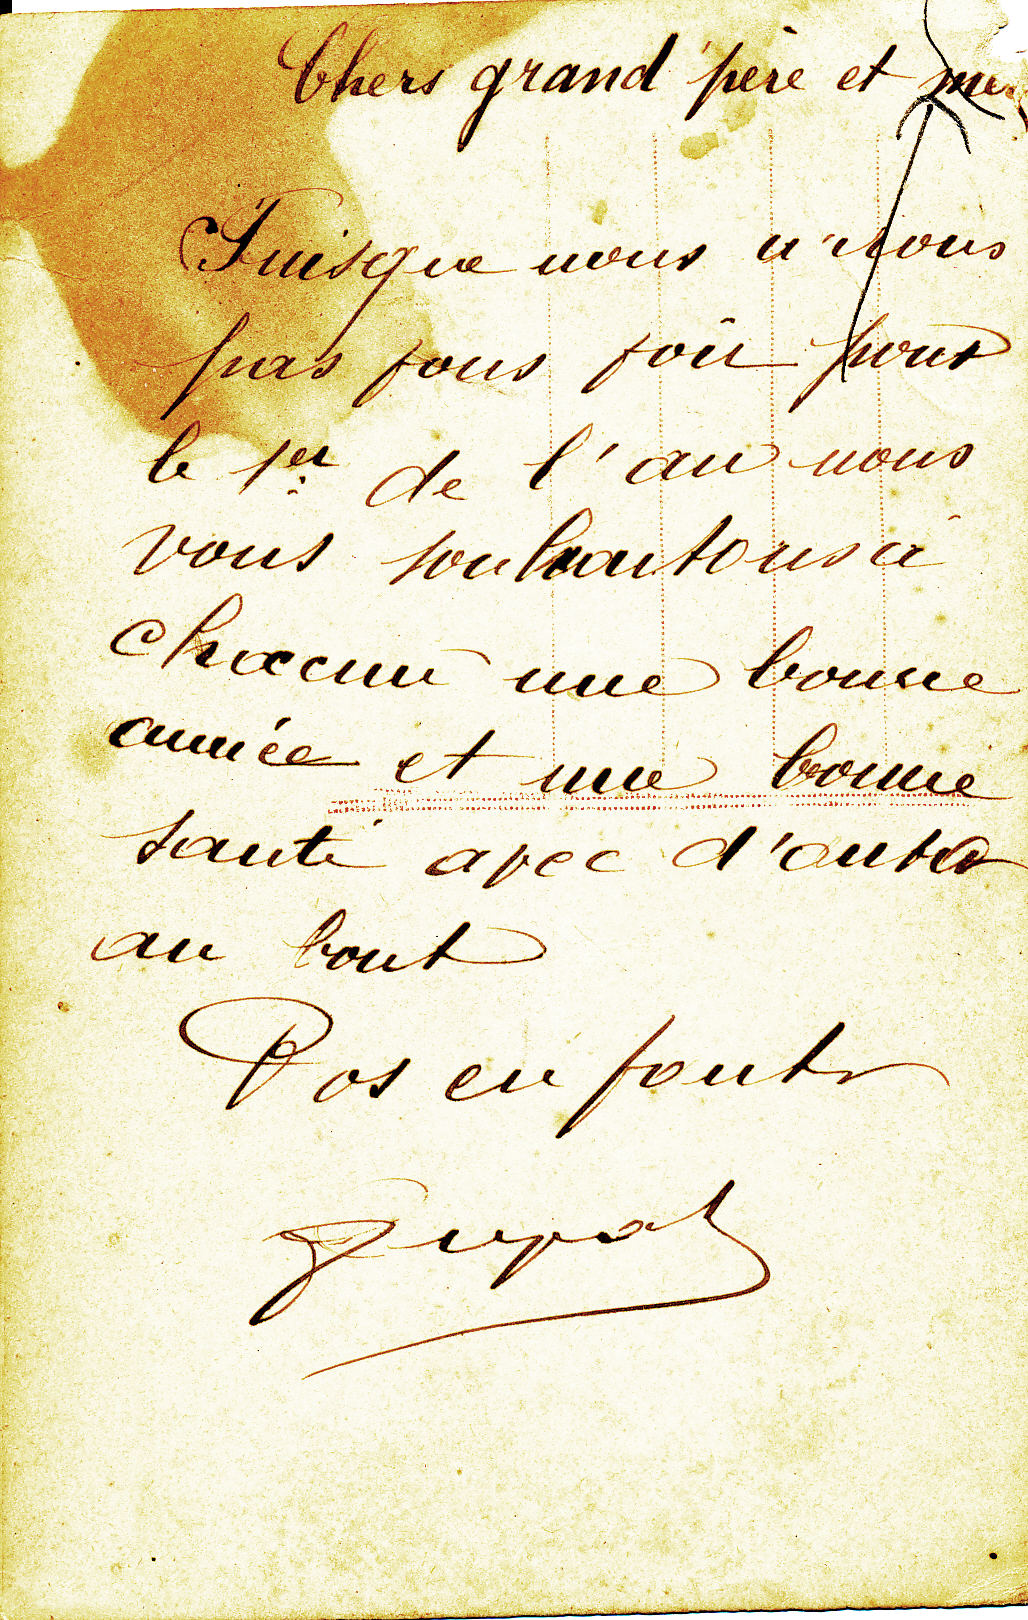 Chers grand père et
Puisque nous n'irons
pas vous voir pour
le 1er de l'an nous
vous souhaitons à
chacun une bonne
année et une bonne
santé avec d'autres
au bout
Vos enfants